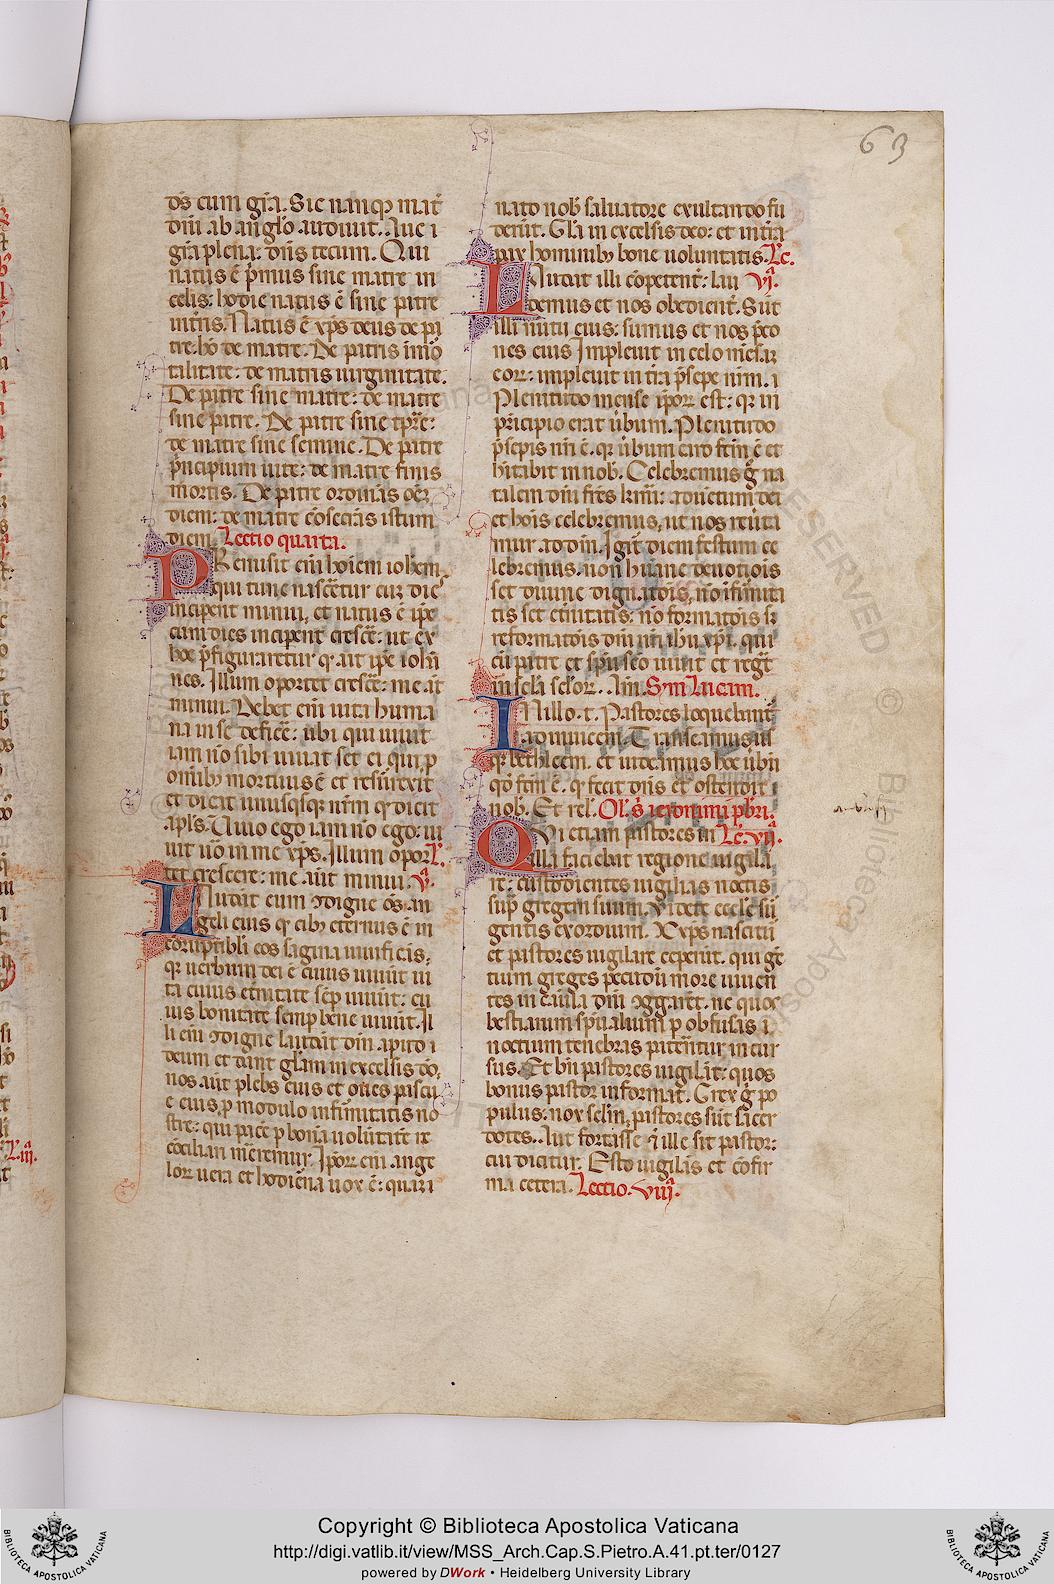 63
dn̄s cum gr̄a. Sic nanq; mat̄
dn̄i ab anglo audiuit. Aue i
gr̄a plena: dn̄s tecum. Qui
natus ē p̄mus sine matre in
celis: hodie natus ē sine patre
in tr̄is. Natus ē xp̄s deus de pa
tre. ho de matre. De patris īmor
talitate: de matris uirginitate.
De patre sine matre: de matre
sine patre. De patre sine tp̄re:
de matre sine semine. De patre
p̄ncipium uite: de matre finis
mortis. De patre ordinās oēm
diem: de matre cōsecrās istum
diem. Lectio quarta.
PRemisit eni hoiem iohem
qui tunc nascēretur cum dies
inciperent minui, et natus ē ipe
cum dies inciperent crescē: ut ex
hoc p̄figuraretur q ait ipe iohn̄
nes. Illum oportet crescē: me aūt
minui. Debet eni uita huma
na in se deficē: ubi qui uiuit
iam nō sibi uiuat set ei qui p
omib; mortuus ē et resurrexit
et dicat unusq̄sq; nr̄m q̄ dicit
apl̄s. Viuo ego iam nō ego: ui
uit uō in me xp̄s. Illum opor L̄.
tet crescere: me aūt minui. v̄.
LAudant eum digne om̄s an
geli eius q̄ cib; eternus ē in
coruptibili eos sagina uiuificās,
q; uerbum dei ē cuius uiuūt ui
ta cuius etn̄itate sēp uiuūt: cu
ius bonitate semp bene uiuūt. Il
li eni digne laudāt dn̄m apud d
deum et dant gl̄am in excelsis dō,
nos aūt plebs eius et oues pascu
e eius, p modulo infirmitatis no
stre: qui pacē p bona uolūtatē re
cōciliari m̄eremur. Ipor; eni ange
lor; uera et hodierna uox ē: quam
nato nob̄ saluatore exultando fu
derūt. Gl̄a in excelsis deo: et in t̄ra
pax hominib; bone uoluntatis. Lc.
LAudāt illi cōpetent̄: lau vi.
demus et nos obedient̄. Sūt
illi nutū eius: sumus et nos pec
nes eius Impleuit in celo mēsam
eor;: impleuit in t̄ra p̄sepe nr̄m. i
Plenitudo mense ipor; est: q; in
p̄ncipio erat ūbum. Plenitudo
p̄sepis nr̄i ē. q; ūbum caro fcm̄ ē et
hītabit in nob̄. Celebremus ḡ na
talem dn̄i fr̄es kr̄mi: aduētum dei
et hoīs celebremus, ut nos reūta
mur ad dn̄. Igit̄ diem festum ce
lebremus. non hūane deuotiōis
set diuine dignatōis, nō infirmita
tis set etn̄itatis: nō formatōis set
reformatōis dn̄i nr̄i ihu xp̄i. qui
cū patre et sp̄u scō uiuit et regn̄t
in scl̄a sclor;. Am. Scd̄m lucam.
INillo. t. Pastores loquebant̄
ad inuicem Transeamus usq̄
q; bethleem. et uideamus hoc ūbū
qd̄ fcm̄ ē. q; fecit dn̄s et ostendit
nob̄. Et rel̄. Om̄. s̄. ieronimi pb̄ri.
QVi etiam pastores in Lc. vii.
illa faciebāt regione uigilā
tes: custodientes uigilias noctis
sup̄ gregem suum. Videte eccl̄e sur
gentis exordium. Xp̄s nascitur
et pastores uigilare ceperūt. qui gē
tium greges pecudum more uiuen
tes in caula dn̄i 9ggarēt. ne quor;
bestiarum sp̄ualium p obfusas i
noctium tenebras paterentur incur
sus. Et bn̄ pastores uigilāt: quos
bonus pastor informat. Grex ḡ po
pulus: nox sclm̄, pastores sūt sacer
dotes. Aut fortasse et ille sit pastor:
cui dicitur. Esto uigilās et cōfir
ma cetera. Lectio. viij.
BIBLIOTECA APOSTOLICA VATICANA
Copyright © Biblioteca Apostolica Vaticana
http://digi.vatlib.it/view/MSS_Arch.Cap.S.Pietro.A.41.pt.ter/0127
powered by DWork • Heidelberg University Library
BIBLIOTECA APOSTOLICA VATICANA